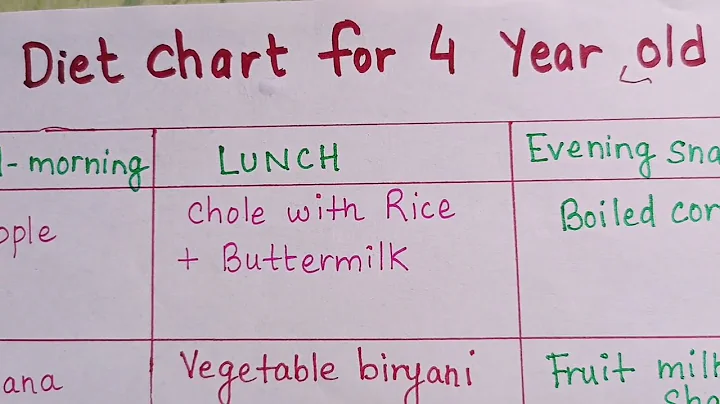 Diet chart for 4 Year old
- morning LUNCH Evening
chole with Rice
+ Buttermilk
Boiled
Vegetable biryani
Fruit